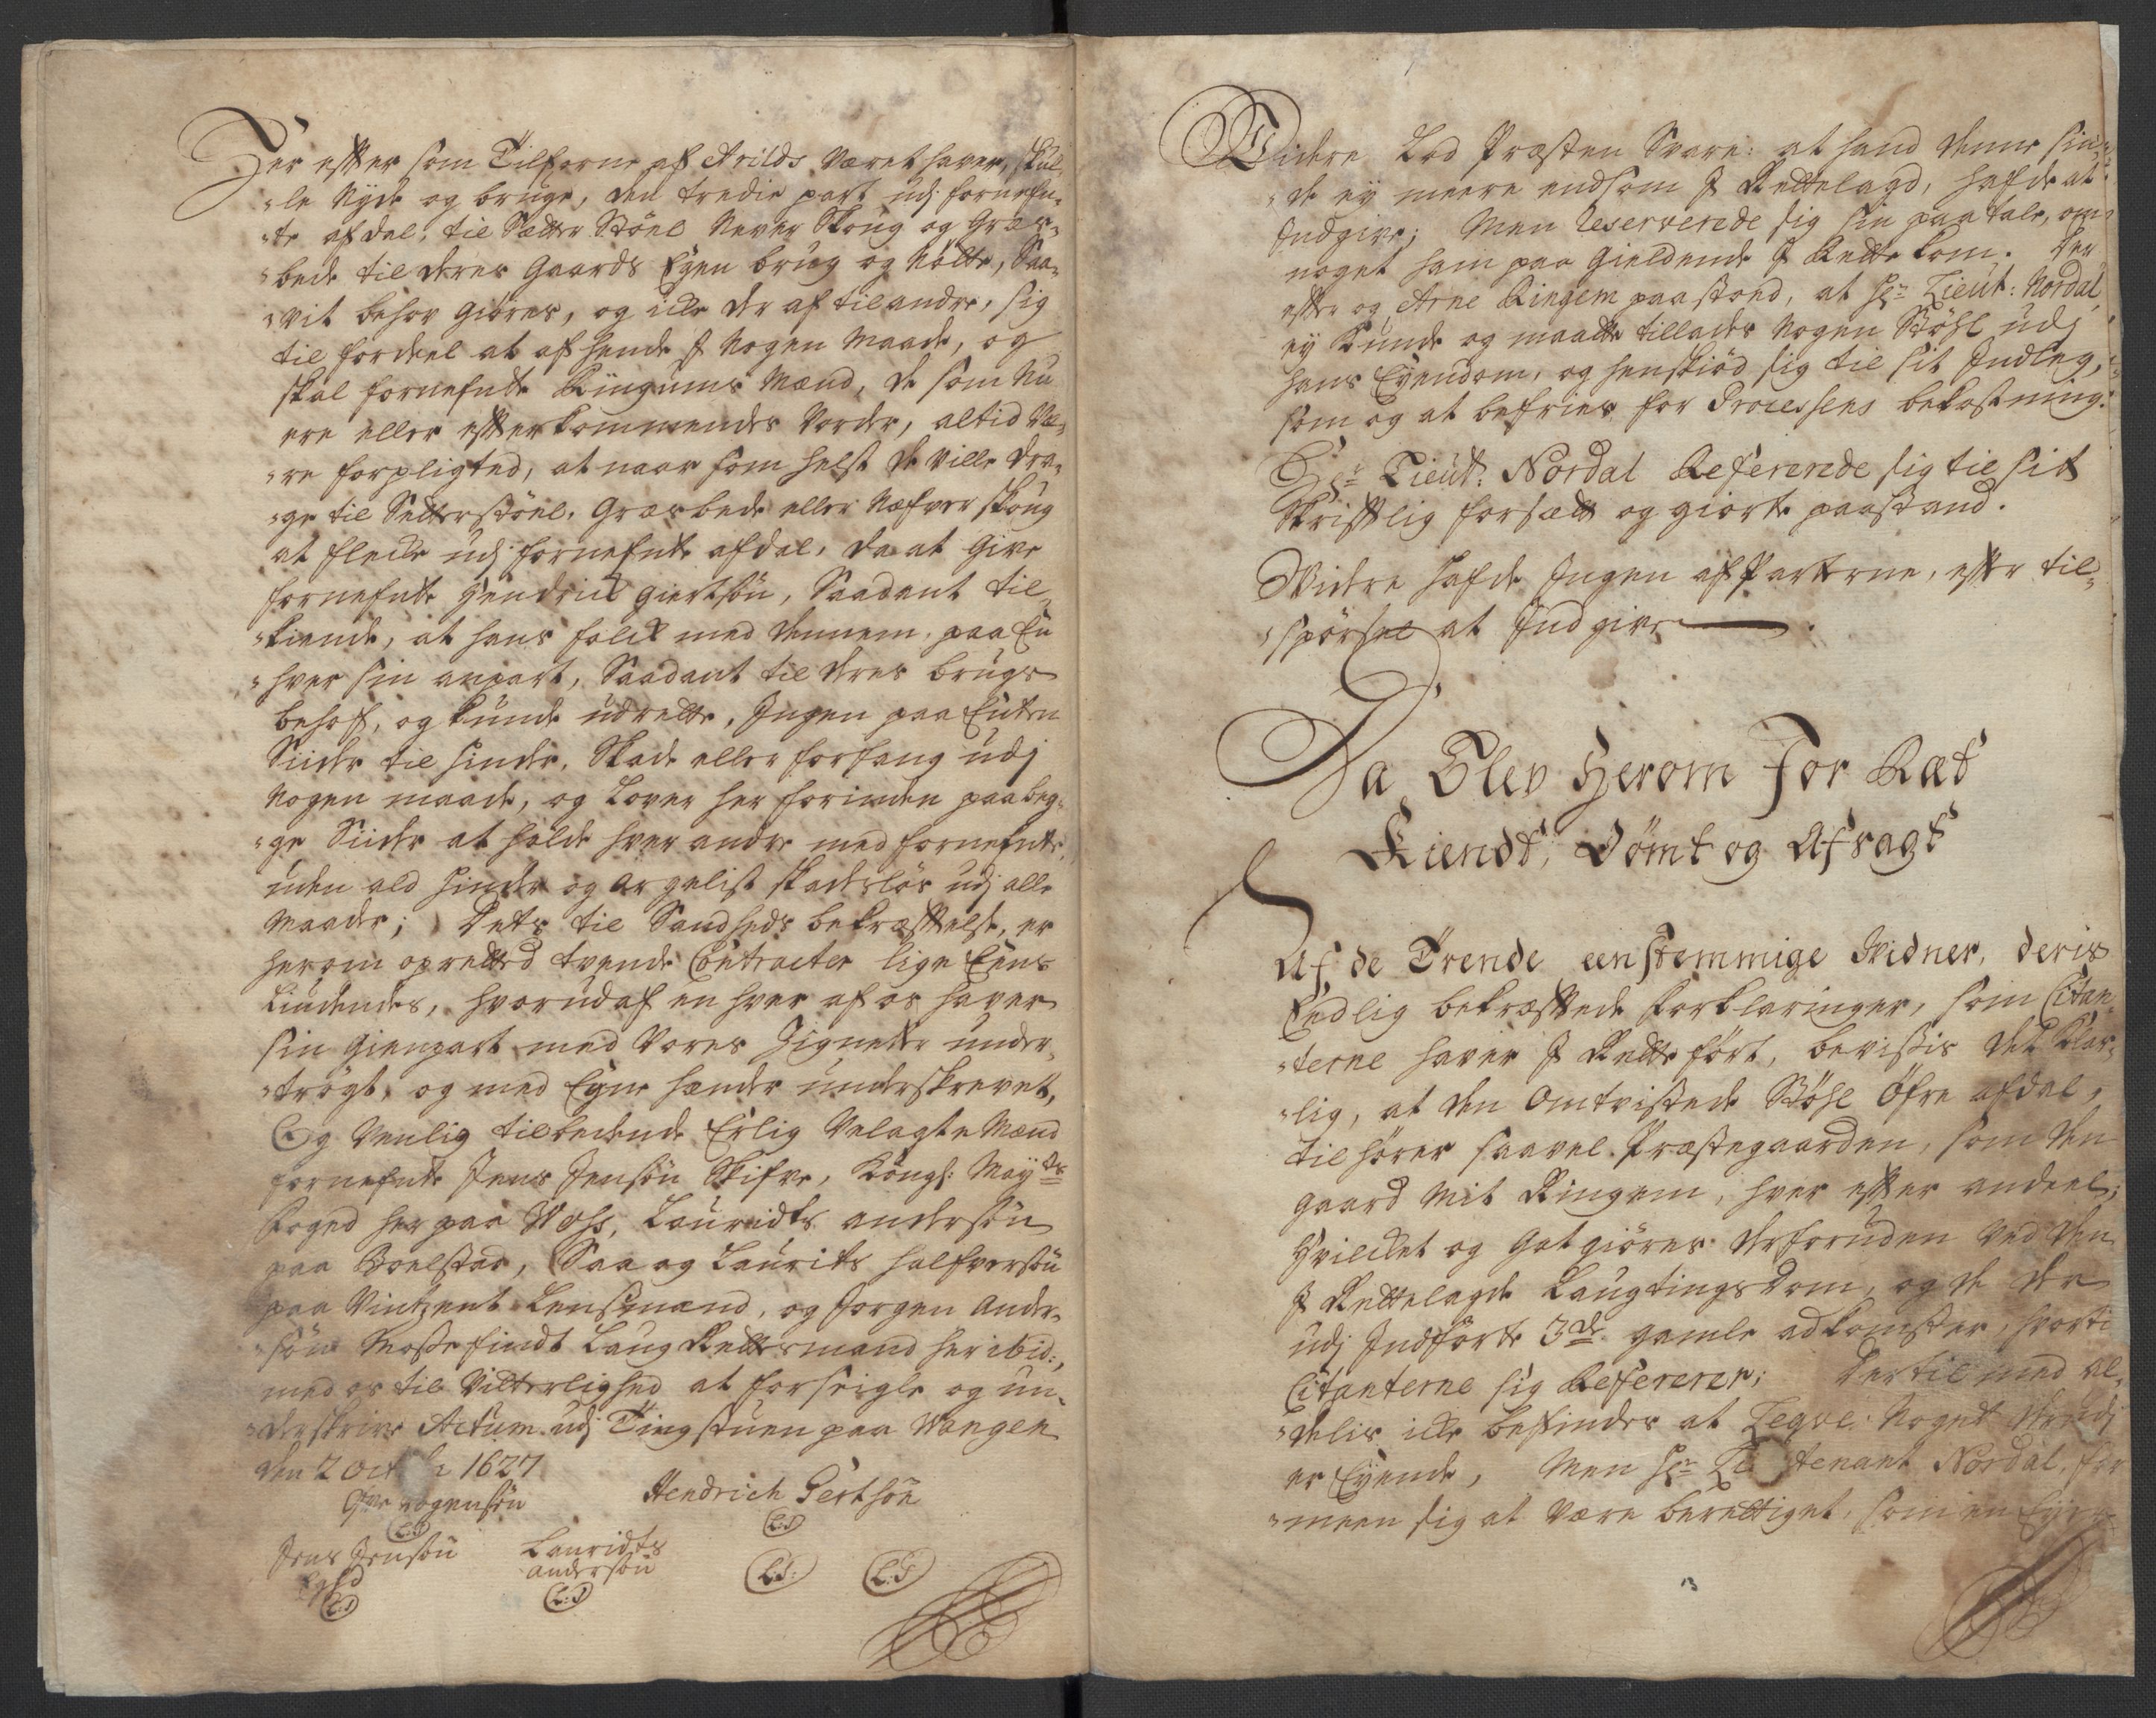 Her efter som Tilforne af Arilds Været haver, skul,
-le Nyde og bruge, den tredie part udj fornefn,
-te afdal, til Sætter Stöel Never Skoug og Græs,
-bede til deres Gaards Egen brug og Nötte, Saa,
-vit behov Giöres, og icke der af til andre, sig
til fordeel at af hende J Nogen Maade, og
skal fornefnte Ringums Mænd, de som Nu
ere eller efterkommendes Vorde, altid Væ,
-re forpligted, at naar som helst de Ville dra,
-ge til Setterstöel, Græsbede eller Næfver skoug
at flecke udj fornefnte afdal, da at Give
fornefnte Hendrick Giertsön, Saadant til
-kiende, at hans folck med dennem, paa En
-hver sin anpart, Saadant til deres brugs
behof, og kunde udrette, Ingen paa Enten
Siider til Hinder, Skade eller forfang udj
Nogen maade, og Lover her forinden paa beg,
-ge Siider at holde hver andre med fornefnte,
uden ald Hinder og Argelist skadeslös udj alle
Maader; Dets til Sandheds bekræftelse, er
herom opretted tvende Contracter lige Eens
Liudendes, hvorudaf en hver af os haver
sin Gienpart med Vores Zigneter under,
-trögt, og med Egne hænder underskrevet,
Og Venlig tilbedende Erlig Velagte Mænd
fornefnte Jens Jensön Skifve, Kongl: May:ts
Foged her paa Woss, Lauridts andersön
paa Boelstad, Saa og Laurits halfversön
paa Vintzent Lensmand, og Jorgen Ander,
-sön Mossefindt Laug Rettesmand her ibid:,
med os til Vitterlighed at forseigle og un,
-derskrive Actum udj Tingstuen paa Wangen
den 2 Oct 1627
ogensön Hendrich Gertsön
(L:S) (L:S)
Jens Jensön Lauridts
Eghd andersön (L:S:) (L:S)
(L:S) (L:S)
Widere Lod Præsten Svare: at hand denne sin,
-de ey meere endsom J Rettelagd, hafde at
Indgive; Men reserverede sig sin paatale, om
noget ham paa Gieldende J Rette kom. Der
efter og Arne Ringem paastood, at Hr: Lieut: Nordal
ey kunde og maatte tillades Nogen Stöhl udj
hans Eyendom, og henskiöd sig til sit Indleg,
som og at befries for Processens bekostning.
Hr: Lieut: Nordal Refererede sig til sit
Skriftlig forsædt og giorte paastand.
Widere hafde Ingen af Parterne, efter til,
-spörsel at Indgive.
Da Blev Herom For Ræt
Kiendt, Dömt og Afsagt
Af de Trende eenstemmige Vidner, deris
Eedlig bekræftede forklaringer, som Citan
-terne haver J Rette fört, bevisis det klar,
-lig, at den Omtvistede Stöhl Öfre afdal,
tilhörer saavel Præstegaarden, som den
gaard Mit Ringem, hver efter andeel;
Hvilcket og Gotgiöres derforuden ved den
J Rettelagde Laugtingsdom, og de der
udj Indförte 3de gamle adkomster, hvortil
Citanterne sig Refererer; Dertil med al,
-delis icke befindes at Tegve Noget derudj
er Eyende, Men Hr: Lieutenant Nordal, for
-meen sig at Være berettiget, som en Eyer